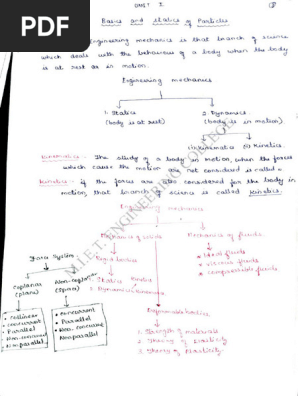 PDF
UNIT I
Basics and statics of Particles
Engineering mechanics is that branch of science
which deals with the behaviour of a body when the body
is at rest or in motion.
Engineering mechanics
1. Statics
(body is at rest)
2. Dynamics
(body is in motion)
(i) Kinematics (ii) Kinetics
Kinematics :- The study of a body in motion, when the forces
which cause the motion are not considered is called
Kinetics :- if the forces are also considered for the body in
motion that branch of science is called Kinetics.
Engineering mechanics
Mechanics of solids
Mechanics of fluids
Rigid bodies
* Ideal fluids
* viscous fluids
* compressible fluids
1. Statics
2. Dynamics
Kinematics
Force System
Coplanar
(plane)
Non-coplanar
(Space)
* Collinear
* concurrent
* Parallel
* Non-concurrent
Nonparallel
* concurrent
* Parallel
* Non-concurrent
Nonparallel
Deformable bodies
1. Strength of materials
2. Theory of elasticity
3. Theory of plasticity
M.I.E.T. ENGINEERING COLLEGE